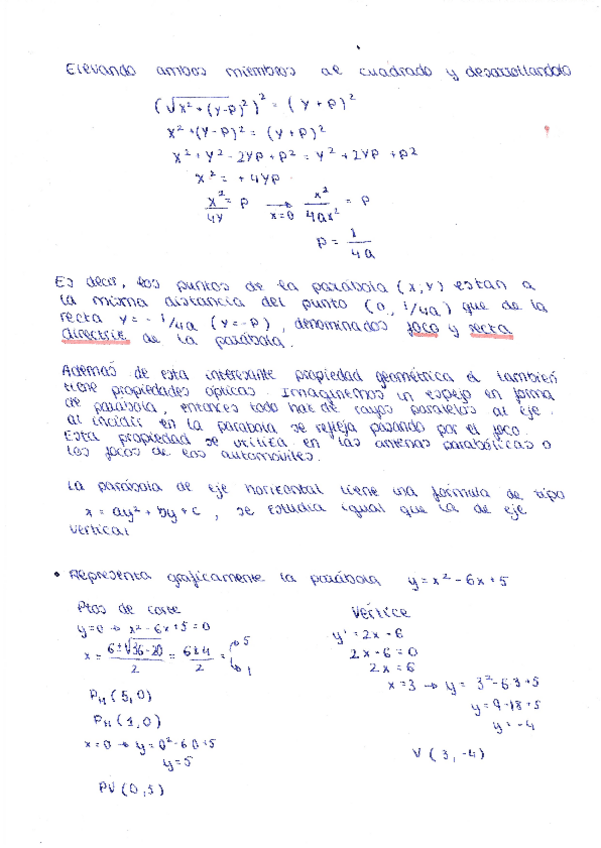 Elevando ambos miembros al cuadrado y desarrollandolo
(√x²+(y-p)²)² = (y+p)²
x²+(y-p)² = (y+p)²
x²+y²-2yp+p² = y²+2yp+p²
x² = +4yp
x²/4y = p → x=0 x²/4ax² = p
p = 1/4a
Es decir, los puntos de la parábola (x,y) estan a
la misma distancia del punto (0, 1/4a) que de la
recta y = -1/4a (y=-p), denominados foco y recta
directriz de la parábola.
Además de esta interesante propiedad geométrica el también
tiene propiedades ópticas. Imaginemos un espejo en forma
de parábola, entonces todo haz de rayos paralelos al eje
al incidir en la parabola se refleja pasando por el foco.
Esta propiedad se utiliza en las antenas parabólicas o
los focos de los automóviles.
La parábola de eje horizontal tiene una fórmula de tipo
x = ay²+by+c, se estudia igual que la de eje
vertical
• Representa gráficamente la parábola y=x²-6x+5
Ptos de corte
y=0 → x²-6x+5=0
x = 6±√36-20/2 = 6±4/2 = 5
1
PH (5,0)
PH (1,0)
x=0 → y=0²-6·0+5
y=5
PV (0,5)
Vértice
y' = 2x-6
2x-6=0
2x=6
x=3 → y= 3²-6·3+5
y=9-18+5
y=-4
V (3,-4)